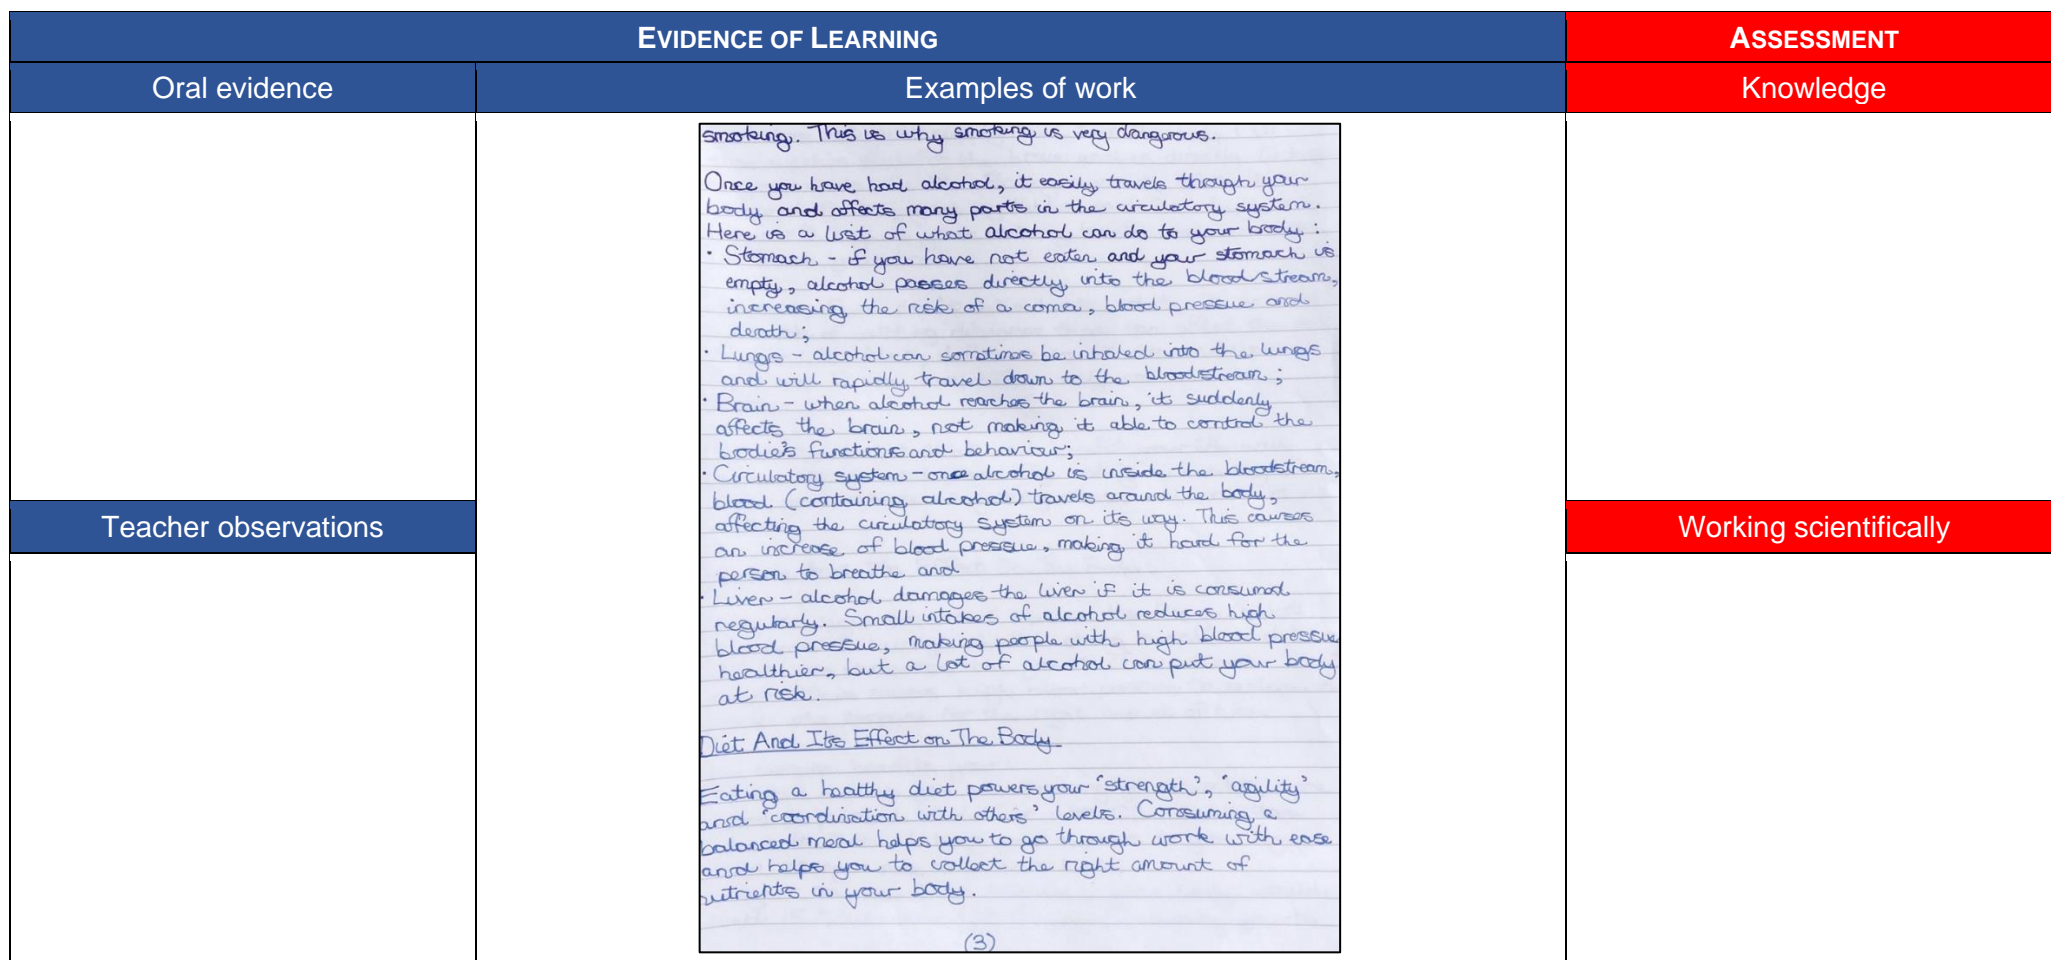 EVIDENCE OF LEARNING
ASSESSMENT
Oral evidence
Examples of work
Knowledge
smoking. This is why smoking is very dangarous.
Once you have had alcohol, it easily travels through your
body and affects many parts in the circulatory system.
Here is a list of what alcohol can do to your body :
· Stomach - if you have not eaten and your stomach is
empty, alcohol passes directly into the bloodstream,
increasing the risk of a coma, blood pressue and
death;
· Lungs - alcohol can somtimes be inhaled into the lungs
and will rapidly travel down to the bloodstream;
· Brain - when alcohol reaches the brain, it suddenly
affects the brain, not making it able to control the
bodie's functions and behaviour;
· Circulatory system - once alcohol is inside the bloodstream,
blood (containing alcohol) travels around the body,
affecting the circulatory system on its way. This causes
an increase of blood pressue, making it hard for the
person to breathe and
· Liver - alcohol damages the liver if it is consumed
regularly. Small intakes of alcohol reduces high
blood pressue, making people with high blood pressue
healthier, but a lot of alcohol can put your body
at risk.
Diet And Its Effect on The Body
Eating a healthy diet powers your 'strength', 'agility'
and 'coordination with others' levels. Consuming a
balanced meal helps you to go through work with ease
and helps you to collect the right amount of
nutrients in your body.
(3)
Teacher observations
Working scientifically